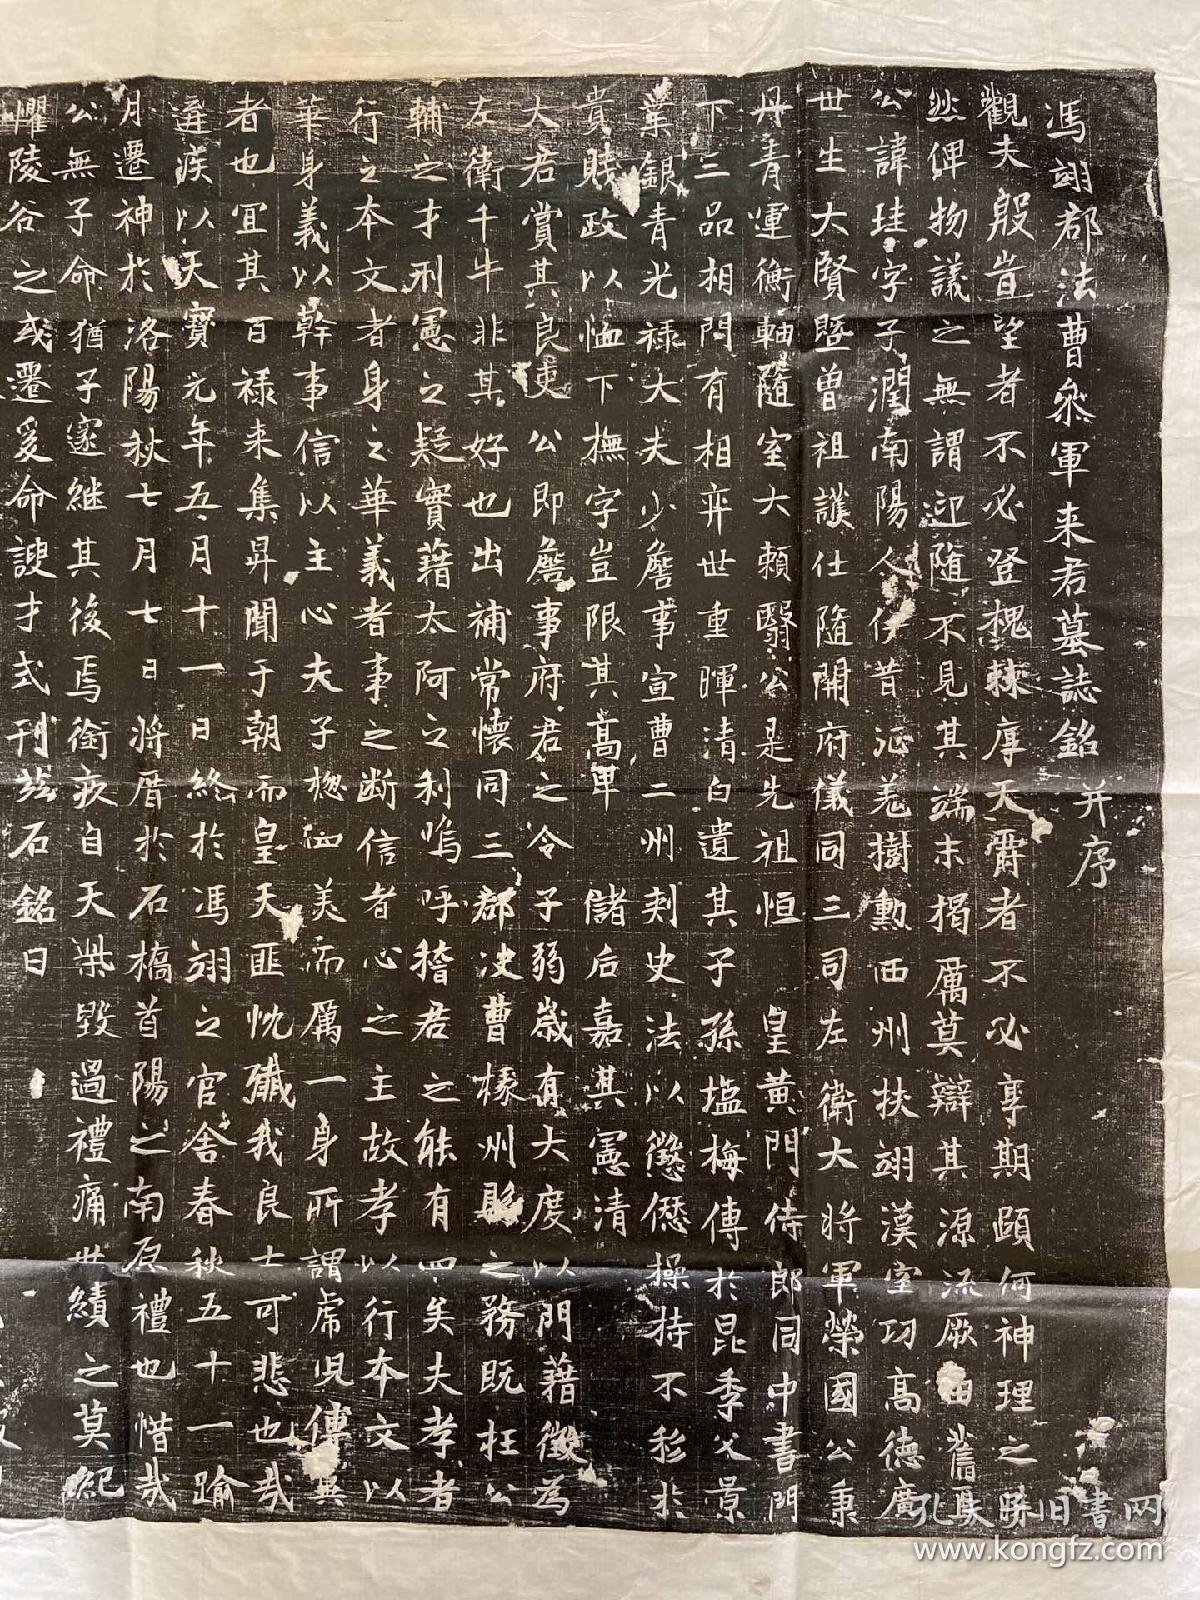 馮翊郡法曹叅軍来君墓誌銘并序
觀夫殷豈望者不必登槐棘厚天爵者不必享期頤何神理之
然俾物議之無謂迎随不見其端末揭厲莫辯其源流厥由舊
公諱珪字子潤南陽人伊昔征羌樹勲西州扶翊漢室功高德廣
世生大賢曁曾祖護仕隨開府儀同三司左衛大将軍榮國公秉
丹青運衡軸隨室大頼毉公是先祖恒 皇黄門侍郎同中書門
下三品相門有相弈世重暉清白遺其子孫塩梅傳於昆季父景
業銀青光禄大夫少詹事宣曹二州刺史法以懲僁操持不移於
貴賤政以恤下撫字豈限其髙卑 儲后嘉其憲清
大君賞其良吏公即詹事府君之令子弱歳有大度以門藉徴為
左衛千牛非其好也出補常懷同三郡决曹掾州縣之務既枉公
輔之才刑憲之疑實藉太阿之利嗚呼稽君之能有四矣夫孝者
行之本文者身之華義者事之断信者心之主故孝以行本文以
華身義以幹事信以主心夫子揔四美而厲一身所謂席皃傳無
者也宜其百禄来集昇聞于朝而皇天匪忱殲我良士可悲也哉
遘疾以天寳元年五月十一日終於馮翊之官舎春秋五十一踰
月遷神於洛陽秋七月七日将厝於石橋首陽之南原禮也惜哉
公無子命猶子邃継其後焉銜疚自天樂毀過禮痛世績之莫紀
懼陵谷之或遷爰命謏才式刊茲石銘曰
孔夫子旧书网
www.kongfz.com